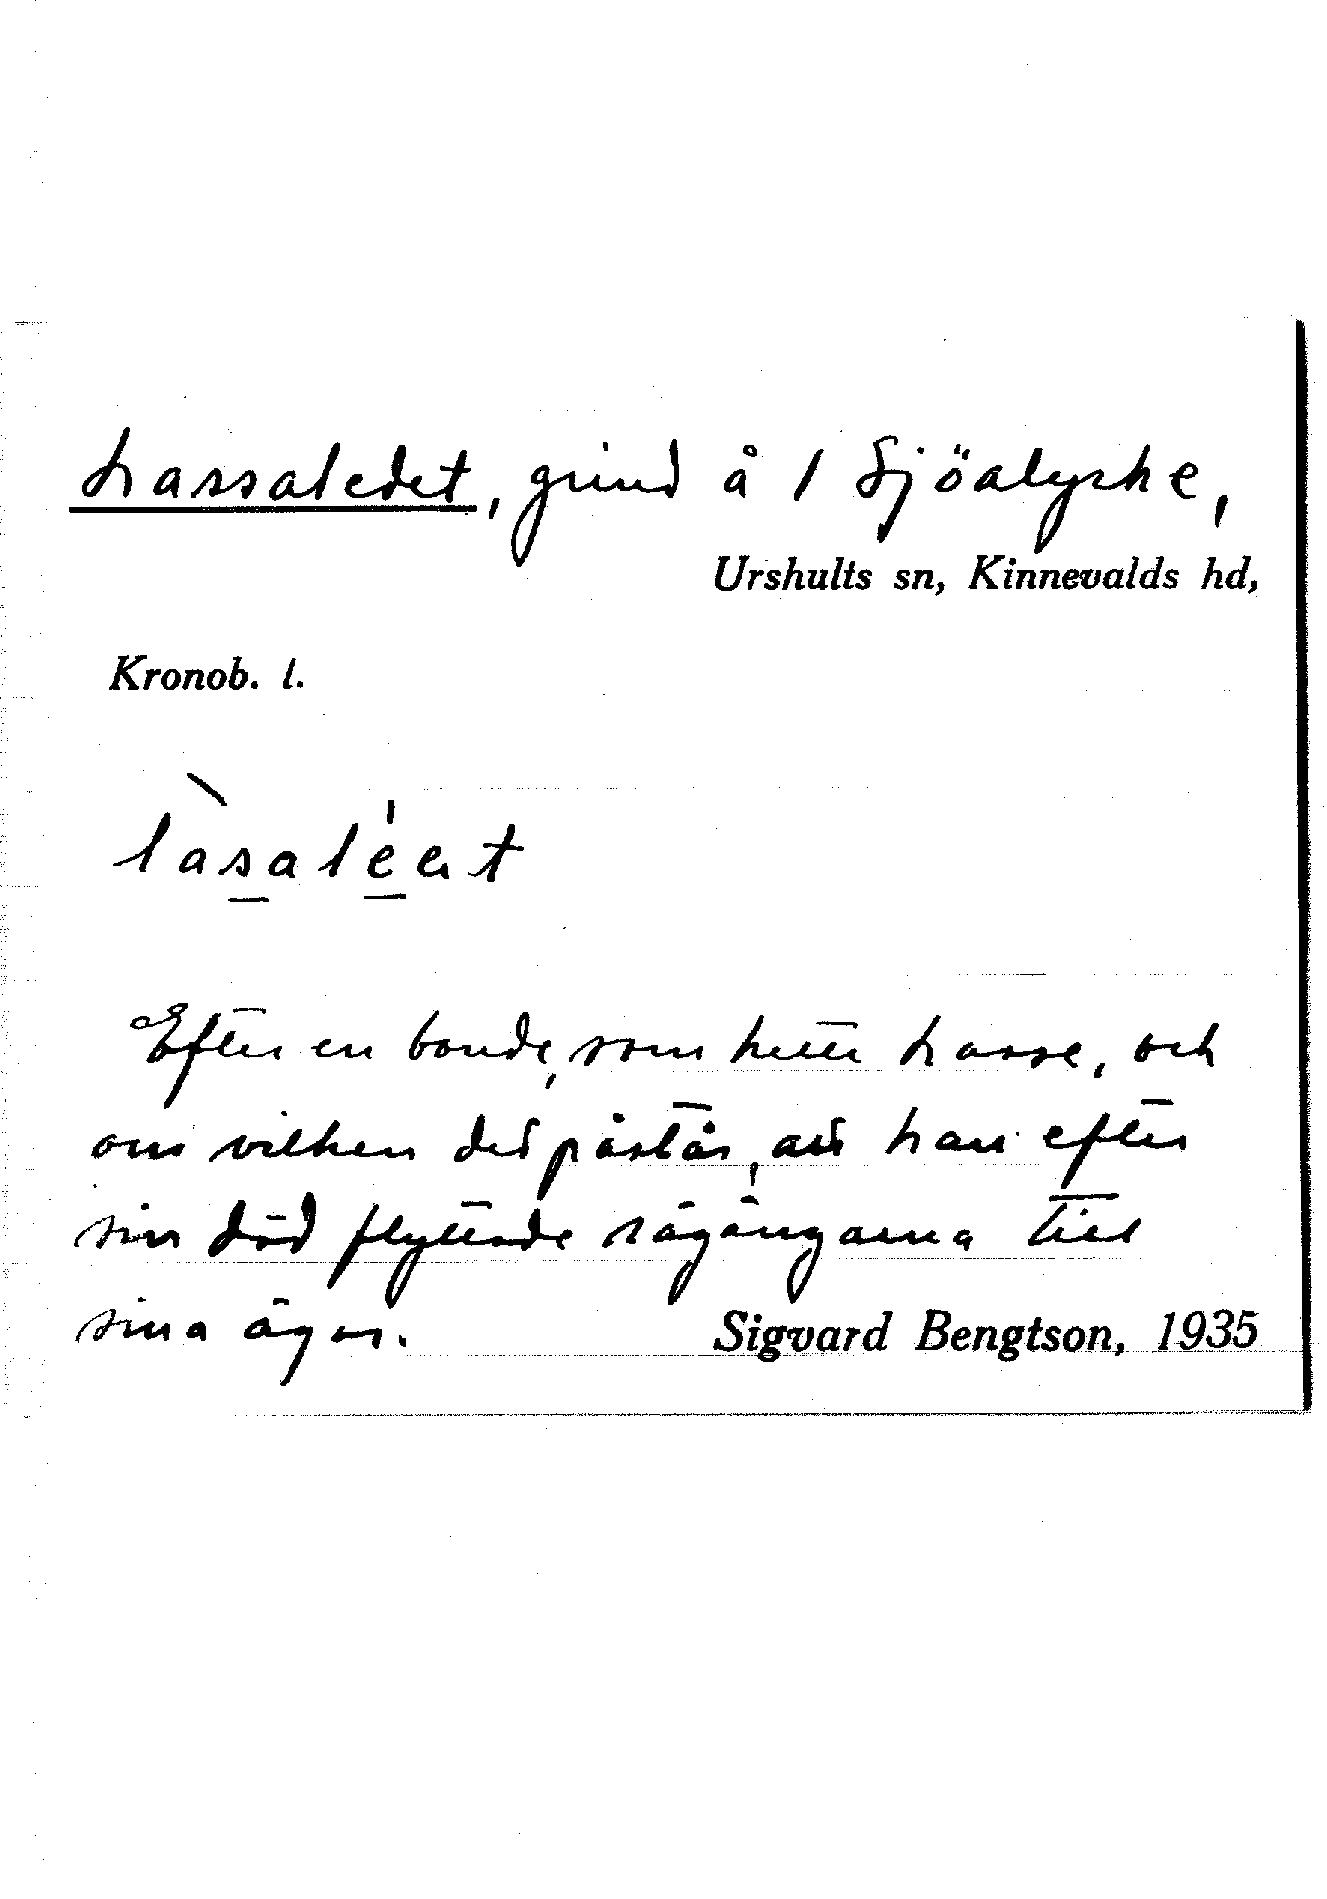 Lassaledet, grind å 1 Sjöalycke,
Urshults sn, Kinnevalds hd,
Kronob. l.
Efter en bonde, som hette Lasse, och
om vilken det påstås, att han efter
sin död flyttade rågångarna till
sina ägor.
Sigvard Bengtson, 1935